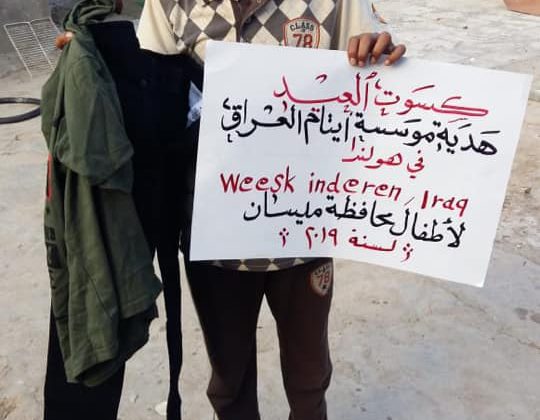 CLASS
78
كسوت العيد
هدية موسسة ايتام العراق
في هولندا
Weesk inderen Iraq
لأطفال محافظة ميسان
لسنة ٢٠١٩
78